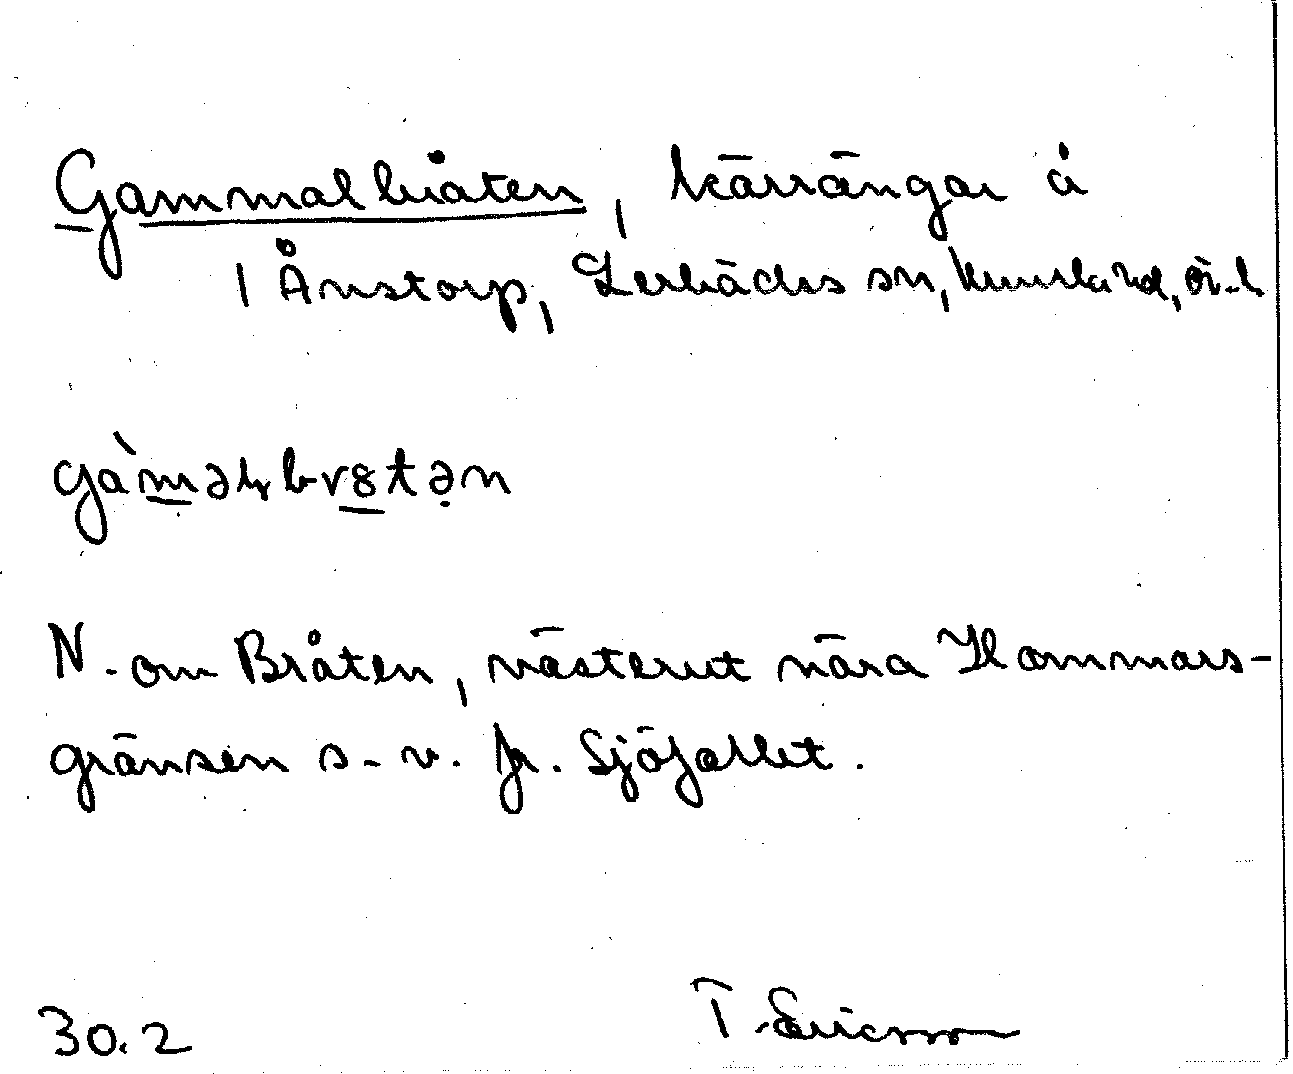 Gammalbråten, kärrängar å
1 Ånstorp, Lerbäcks sn, Kumla hd, ör. l.
N. om Bråten, västerut nära Hammars-
gränsen s. v. fr. Sjöfallet.
30.2 T. Ericsson